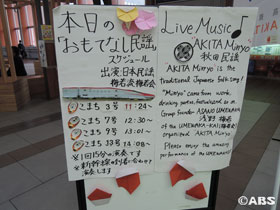 本日の
「おもてなし民謡」
スケジュール
出演:日本民謡
梅若流梅若会
こまち 3号 11:24~
こまち 7号 12:24~
こまち 9号 13:01~
こまち 13号 14:08~
※1回15分の演奏です
演奏します
Live Music♪
"AKITA Minyo"
秋田民謡
AKITA Minyo is the
traditional Japanese folk song!
"Minyo" came from work,
drinking parties, festivals and so on.
Group founder ASANO UMEWAKA
浅野 梅若
of the UMEWAKA-KAI(梅若会)
organized AKITA Minyo
Please enjoy the amazing
performance of the UMEWAKA
©ABS